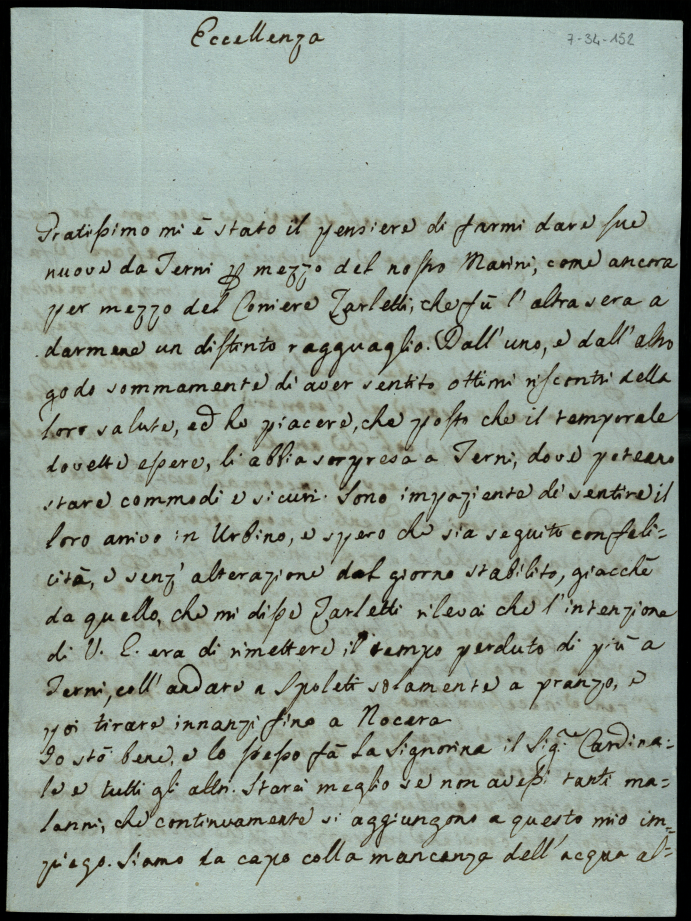 Eccellenza
7-34-152
Gratissimo mi è stato il pensiere di farmi dare sue
nuove da Terni per mezzo del nostro Marini, come ancora
per mezzo del Coriere Zarletti, che fù l'altra sera a
darmene un distinto ragguaglio. Dall'uno, e dall'altro
godo sommamente di aver sentito ottimi riscontri della
loro salute, ed ho piacere, che posto che il temporale
dovette essere, li abbia sorpresa a Terni, dove poteano
stare commodi e sicuri. Sono impaziente di sentire il
loro arrivo in Urbino, e spero che sia seguito con feli-
cità, e senz'alterazione del giorno stabilito, giacchè
da quello, che mi disse Zarletti rilevai che l'intenzione
di V. E. era di rimettere il tempo perduto di più a
Terni, coll'andare a Spoleti solamente a pranzo, e
poi tirare innanzi fino a Nocera
Io stò bene, e lo stesso fà la Signorina il Sig.r Cardina=
le e tutti gli altri. Starei meglio se non avessi tanti ma=
lanni, che continuamente si aggiungono a questo mio im=
piego. Siamo da capo colla mancanza dell'acqua al=